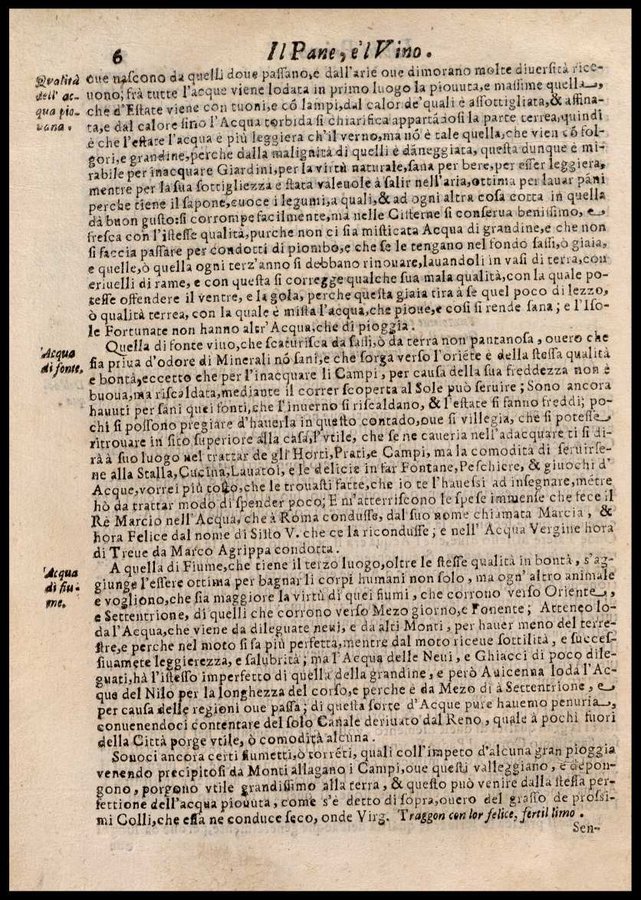 6
Il Pane, e'l Vino.
Qualità
dell' ac-
qua pio-
vana.
oue nascono da quelli doue passano, e dall'arie oue dimorano molte diuersità rice-
uono; frà tutte l'acque viene lodata in primo luogo la piouuta, e massime quella,
che d'Estate viene con tuoni, e cõ lampi, dal calor de' quali è assottigliata, & affina-
ta, e dal calore sino l'Acqua torbida si chiarifica appartãdosi la parte terrea, quindi
è che l'estate l'acqua è più leggiera ch'il verno, ma nõ è tale quella, che vien cõ fol-
gori, e grandine, perche dalla malignità di quelli è dãneggiata, questa dunque è mi-
rabile per inacquare Giardini, per la virtù naturale, sana per bere, per esser leggiera,
mentre per la sua sottigliezza è stata valeuole à salir nell'aria, ottima per lauar pãni
perche tiene il sapone, cuoce i legumi, a quali, & ad ogni altra cosa cotta in quella
dà buon gusto: si corrompe facilmente, ma nelle Cisterne si conserua benissimo, e
fresca con l'istesse qualità, purche non ci sia misticata Acqua di grandine, e che non
si faccia passare per condotti di piombo, e che se le tengano nel fondo sassi, ò giaia,
e quelle, ò quella ogni terz'anno si debbano rinouare, lauandoli in vasi di terra, con
criuelli di rame, e con questa si corregge qualche sua mala qualità, con la quale po-
tesse offendere il ventre, e la gola, perche questa giaia tira à se quel poco di lezzo,
ò qualità terrea, con la quale è mista l'acqua, che pioue, e così si rende sana; e l'Iso-
le Fortunate non hanno altr'Acqua, che di pioggia.
Acqua
di fonte.
Quella di fonte viuo, che scaturisca da sassi, ò da terra non pantanosa, ouero che
sia priua d'odore di Minerali nõ sani, e che sorga verso l'oriẽte è della stessa qualità
e bontà, eccetto che per l'inacquare li Campi, per causa della sua freddezza non è
buona, ma riscaldata, mediante il correr scoperta al Sole può seruire; Sono ancora
hauuti per sani quei fonti, che l'inuerno si riscaldano, & l'estate si fanno freddi; po-
chi si possono pregiare d'hauerla in questo contado, oue si villegia, che si potesse
ritrouare in sito superiore alla casa, l'vtile, che se ne caueria nell'adacquare ti si di-
rà à suo luogo nel trattar de gli Horti, Prati, e Campi, ma la comodità di seruirse-
ne alla Stalla, Cucina, Lauatoi, e le delicie in far Fontane, Peschiere, & giuochi d'
Acque, vorrei più tosto, che le trouasti fatte, che io te l'hauessi ad insegnare, mẽtre
hò da trattar modo di spender poco; E m'atterriscono le spese immense che fece il
Rè Marcio nell'Acqua, che à Roma condusse, dal suo nome chiamata Marcia, &
hora Felice dal nome di Sisto V. che ce la ricondusse; e nell' Acqua Vergine hora
di Treue da Marco Agrippa condotta.
Acqua
di fiu-
me.
A quella di Fiume, che tiene il terzo luogo, oltre le stesse qualità in bontà, s'ag-
giunge l'essere ottima per bagnar li corpi humani non solo, ma ogn' altro animale
e vogliono, che sia maggiore la virtù di quei fiumi, che corrono verso Oriente,
e Settentrione, di quelli che corrono verso Mezo giorno, e Ponente; Atteneo lo-
da l'Acqua, che viene da dileguate neui, e da alti Monti, per hauer meno del terre-
stre, e perche nel moto si fa più perfetta, mentre dal moto riceue sottilità, e succes-
siuamẽte leggierezza, e salubrità; ma l'Acqua delle Neui, e Ghiacci di poco dile-
guati, hà l'istesso imperfetto di quella della grandine, e però Auicenna loda l'Ac-
que del Nilo per la longhezza del corso, e perche è da Mezo dì à Settentrione, e
per causa delle regioni oue passa; di questa sorte d'Acque pure hauemo penuria,
conuenendoci contentare del solo Canale deriuato dal Reno, quale à pochi fuori
della Città porge vtile, ò comodità alcuna.
Sonoci ancora certi fiumetti, ò torrẽti, quali coll'impeto d'alcuna gran pioggia
venendo precipitosi da Monti allagano i Campi, oue questi valleggiano, e depon-
gono, porgono vtile grandissimo alla terra, & questo può venire dalla stessa per-
fettione dell'acqua piouuta, come s'è detto di sopra, ouero del grasso de prossi-
mi Colli, che essa ne conduce seco, onde Virg. Traggon con lor felice, fertil limo.
Sen-